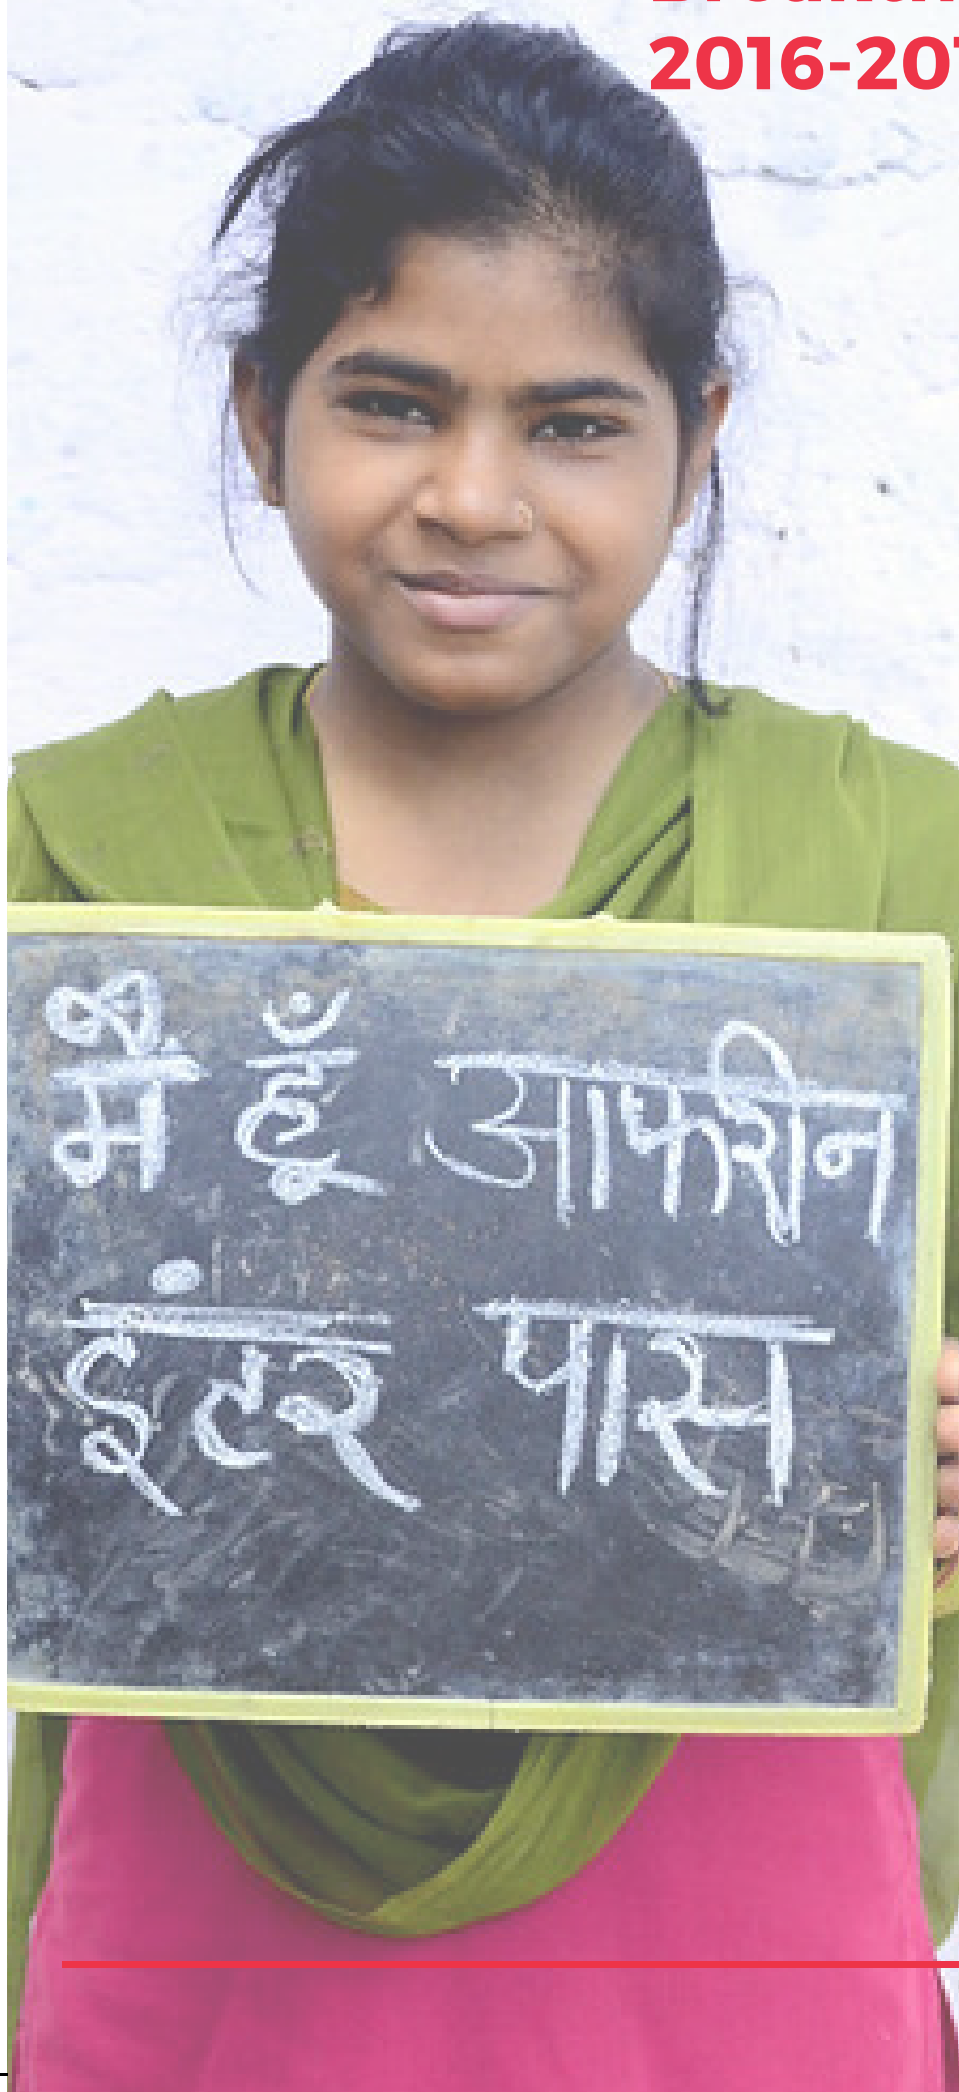 2016-201
मैं हूँ आफरीन
इंटर पास